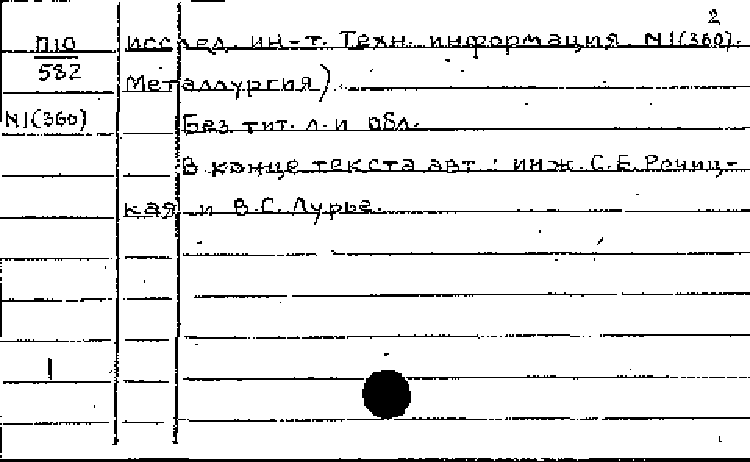 2
П10
582
N1(360)
исслед. ин-т. Техн. информация. N1(360).
Металлургия).
Без тит. л. и обл.
В конце текста авт.: инж. С.Е. Рочиц-
кая и В.С. Лурье.
1